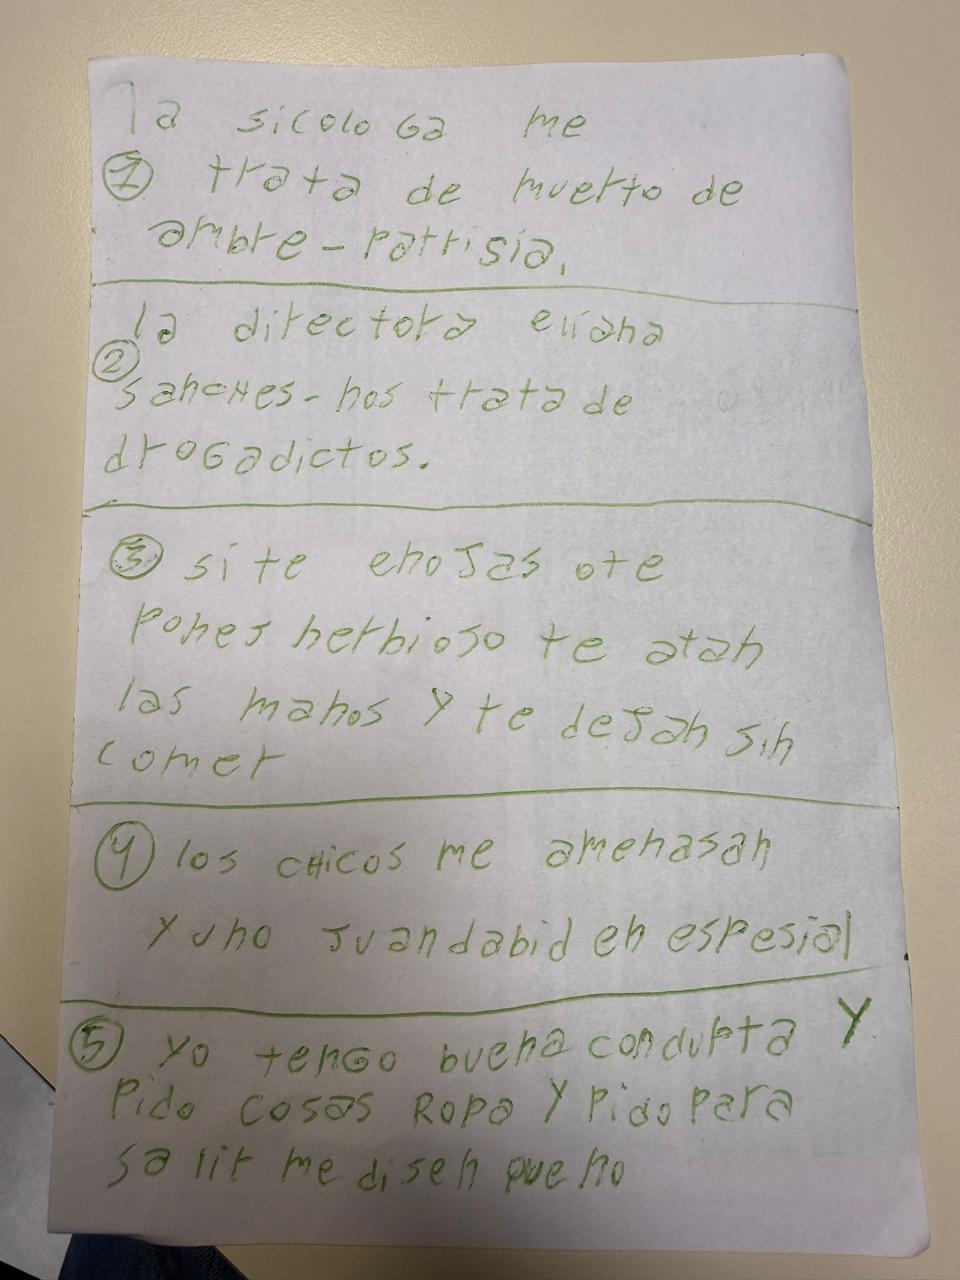 la sicologa me
① trata de muerto de
ambre - Patrisia.
la directora eliana
②
sanches - nos trata de
drogadictos.
③ si te enojas o te
Pones nerbioso te atan
las manos y te dejan sin
comer
④ los chicos me amenasan
y uno Juan dabid en espesial
⑤ yo tengo buena condupta y
Pido cosas Ropa y Pido para
salir me disen que no